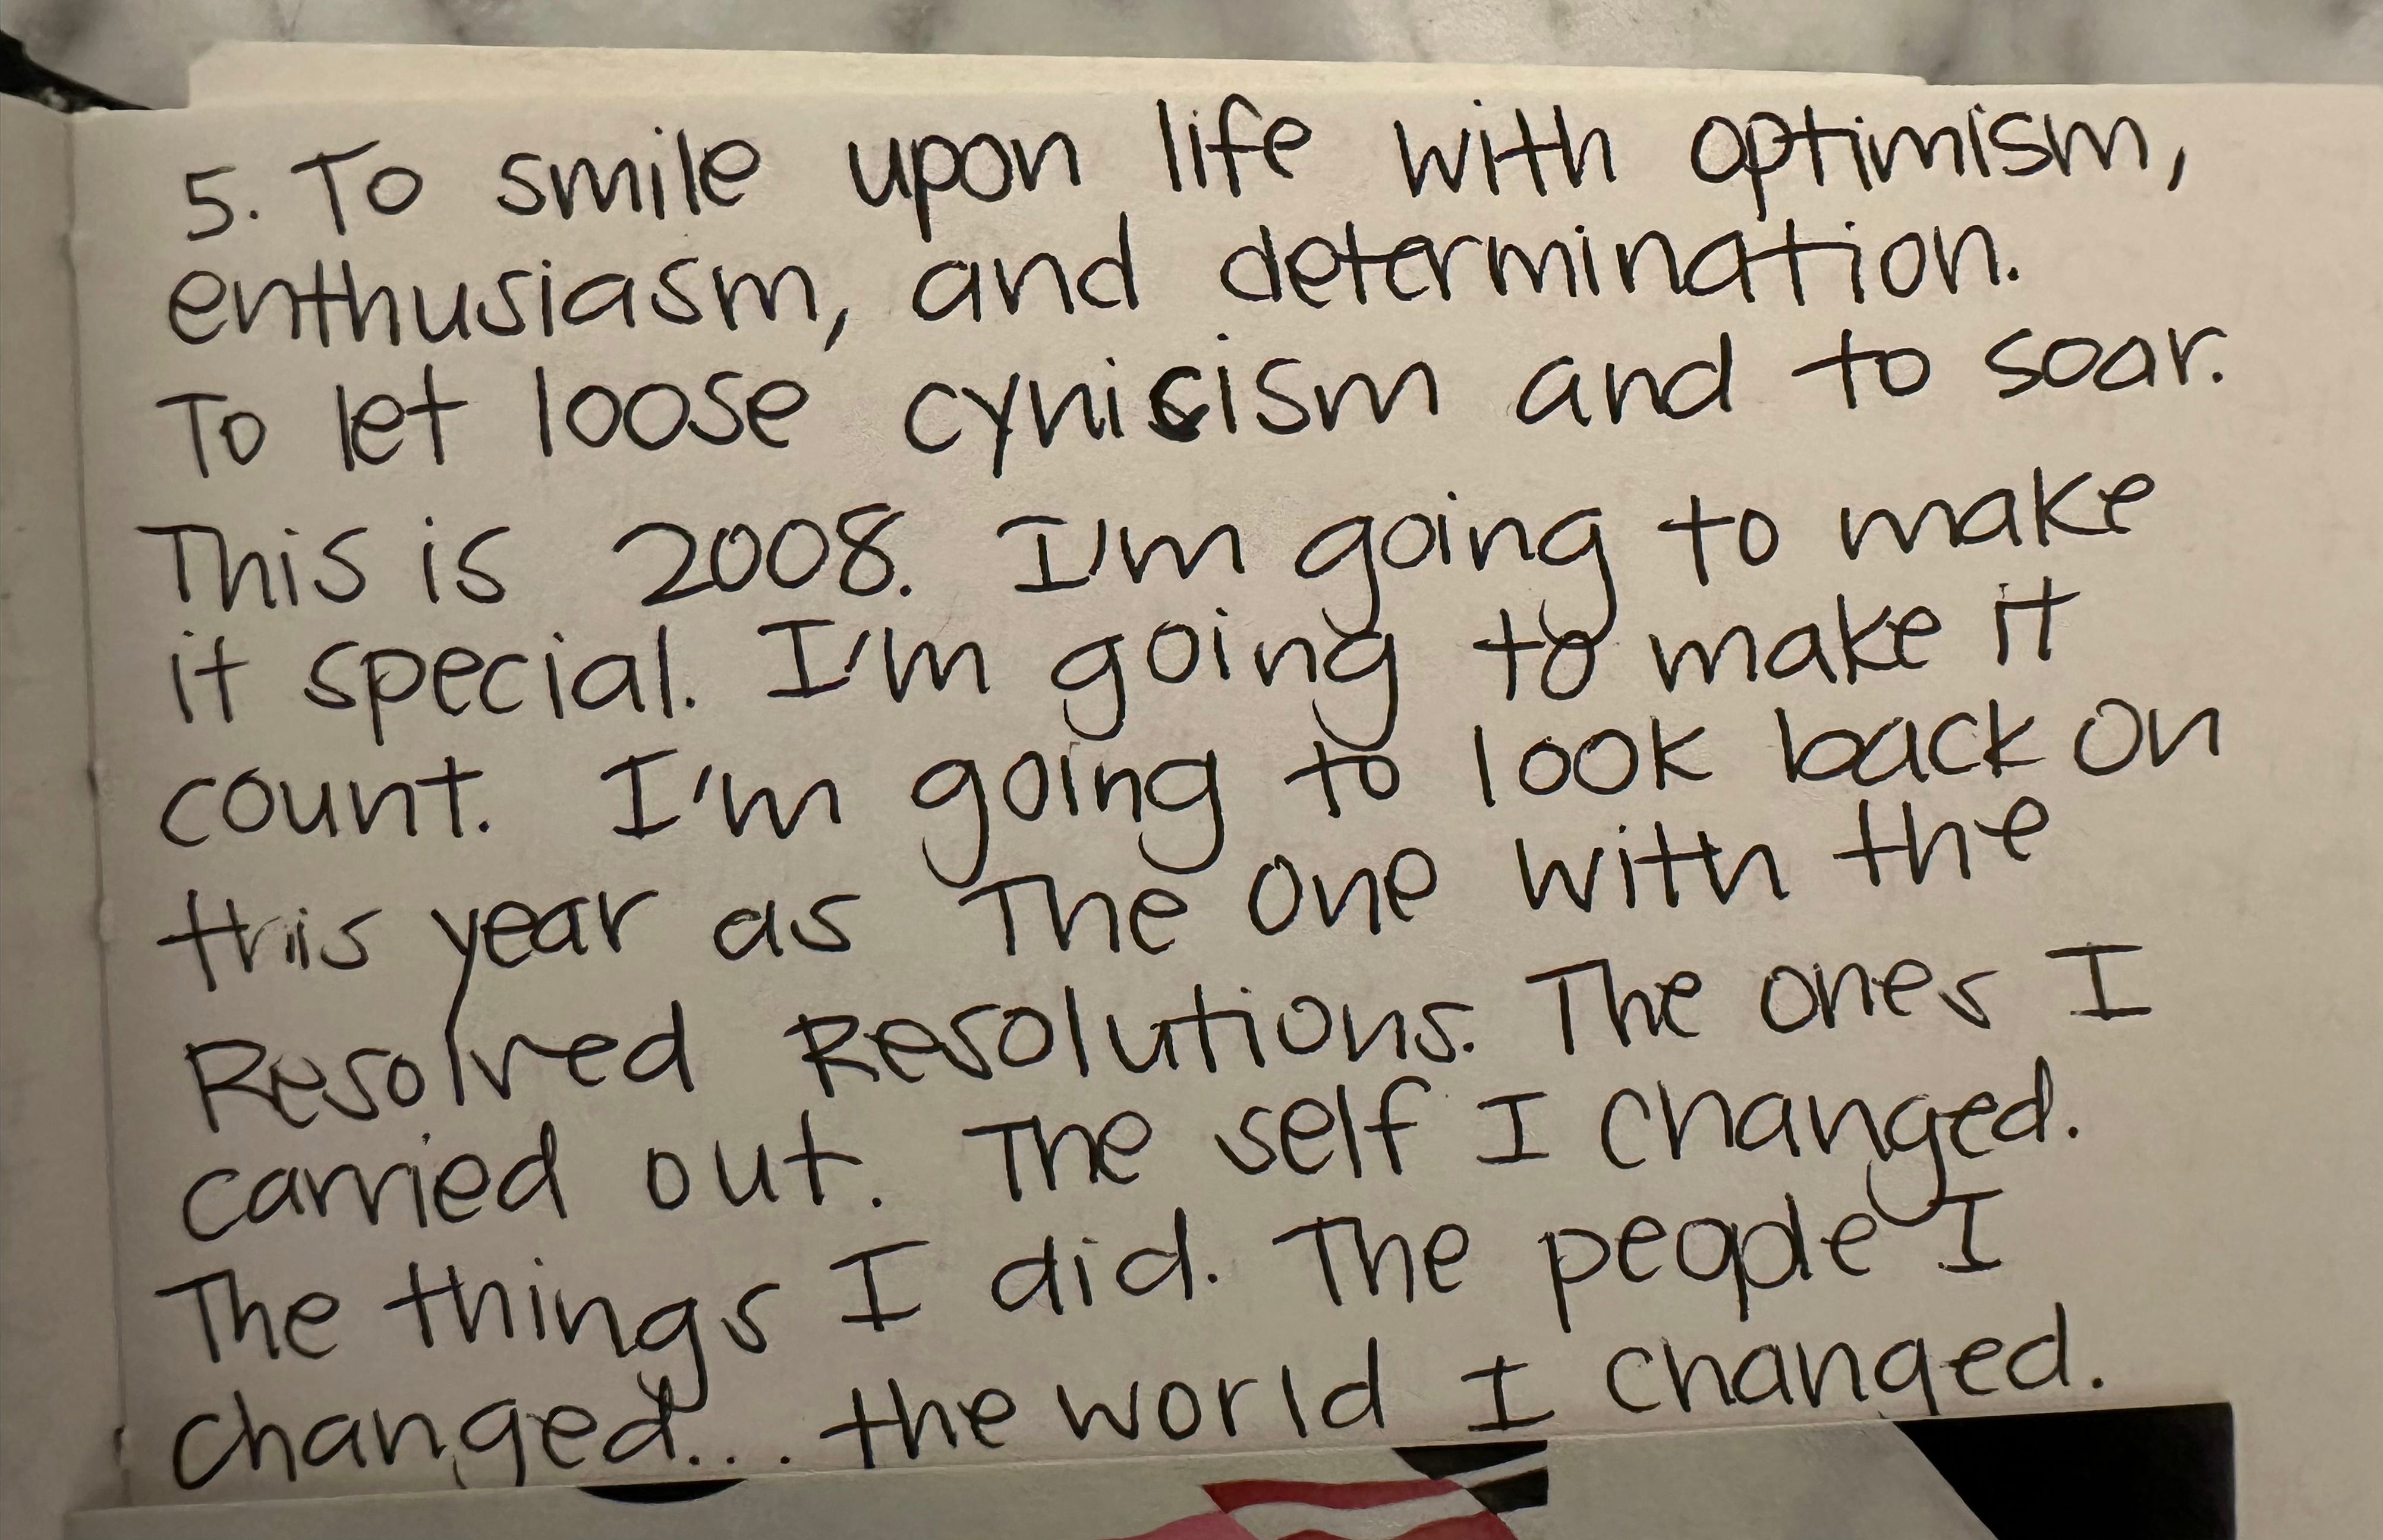 5. To smile upon life with optimism,
enthusiasm, and determination.
To let loose cynicism and to soar.
This is 2008. I'm going to make
it special. I'm going to make it
count. I'm going to look back on
this year as The One with the
Resolved Resolutions. The ones I
carried out. The self I changed.
The things I did. The people I
changed... the world I changed.